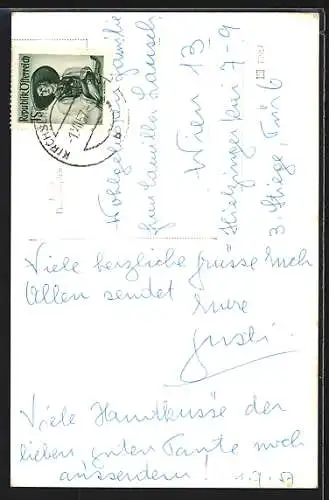 Republik Österreich
1S
KIRCHS
Wohlgeboren Familie
Frau Camilla
Wien 13
Hietzinger Kai 7-9
3. Stiege, Tür 6
Viele herzliche Grüsse Euch
Allen sendet
Eure
Gusti.
Viele Handküsse der
lieben guten Tante noch
ausserdem! 1.7.57